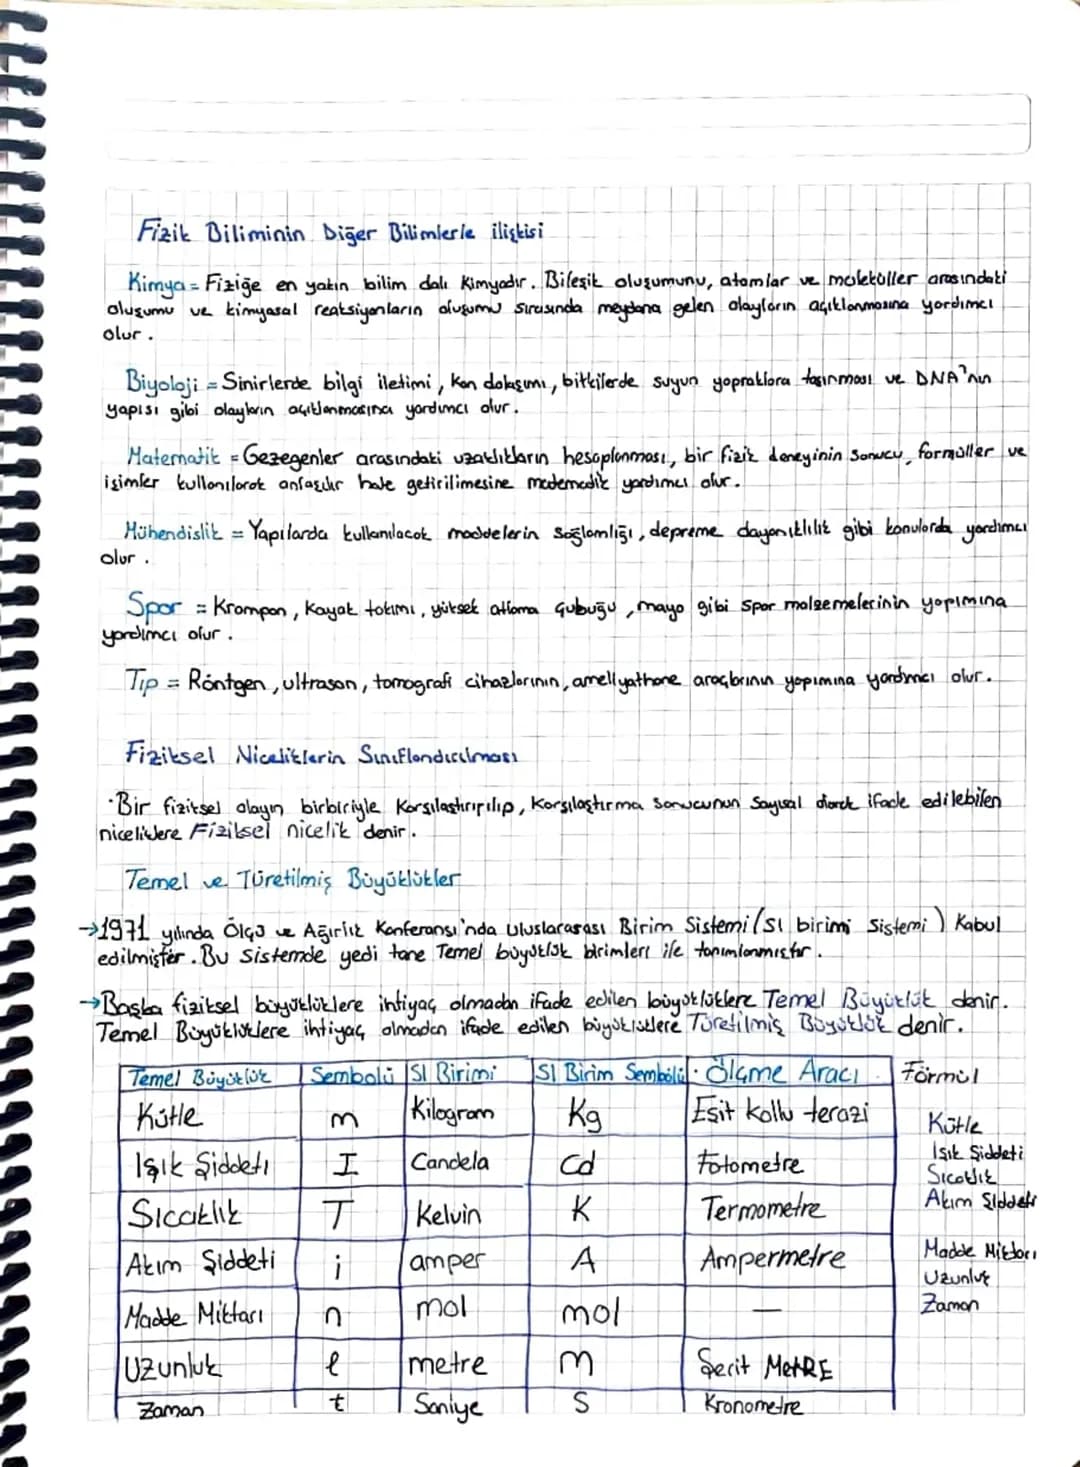 Fizik Biliminin Diğer Bilimlerle ilişkisi
Kimya = Fiziğe en yakın bilim dalı kimyadır. Bileşik oluşumunu, atomlar ve moleküller arasındaki
oluşumu ve kimyasal reaksiyonların oluşumu sırasında meydana gelen olayların açıklanmasına yardımcı
olur.
Biyoloji = Sinirlerde bilgi iletimi, kan dolaşımı, bitkilerde suyun yapraklara taşınması ve DNA'nın
yapısı gibi olayların açıklanmasına yardımcı olur.
Matematik = Gezegenler arasındaki uzaklıkların hesaplanması, bir fizik deneyinin sonucu, formüller ve
işimler kullanılarak anlaşılır hale getirilimesine mademadik yardımcı olur.
Mühendislik = Yapılarda kullanılacak maddelerin sağlamlığı, depreme dayanıklılık gibi konularda yardımcı
olur.
Spor = Krampon, Kayak takımı, yüksek atlama çubuğu, mayo gibi spor malzemelerinin yapımına
yardımcı olur.
Tıp = Röntgen, ultrason, tomografi cihazlarının, ameliyathane araçlarının yapımına yardımcı olur.
Fiziksel Niceliklerin Sınıflandırılması
· Bir fiziksel olayın birbiriyle Karşılaştırırılıp, Karşılaştırma sonucunun Sayısal olarak ifade edilebilen
niceliklere Fiziksel nicelik denir.
Temel ve Türetilmiş Büyüklükler
→1971 yılında Ölçü ve Ağırlık Konferansı'nda Uluslararası Birim Sistemi (SI birimi Sistemi) Kabul
edilmiştir. Bu sistemde yedi tane Temel büyüklük birimleri ile tanımlanmıştır.
→Başka fiziksel büyüklüklere ihtiyaç olmadan ifade edilen büyüklüklere Temel Büyüklük denir.
Temel Büyüklüklere ihtiyaç olmadan ifade edilen büyüklüklere Türetilmiş Büyüklük denir.
Temel Büyüklük Sembolü SI Birimi SI Birim Sembolü · Ölçme Aracı Formül
Kütle m Kilogram Kg Eşit kollu terazi Kütle
Işık Şiddeti I Candela Cd Fotometre Işık Şiddeti
Sıcaklık T Kelvin K Termometre Sıcaklık
Akım Şiddeti i amper A Ampermetre Akım Şiddeti
Madde Miktarı n mol mol — Madde Miktarı
Uzunluk l metre m Şerit MetRE Uzunluk
Zaman t Saniye S Kronometre Zaman